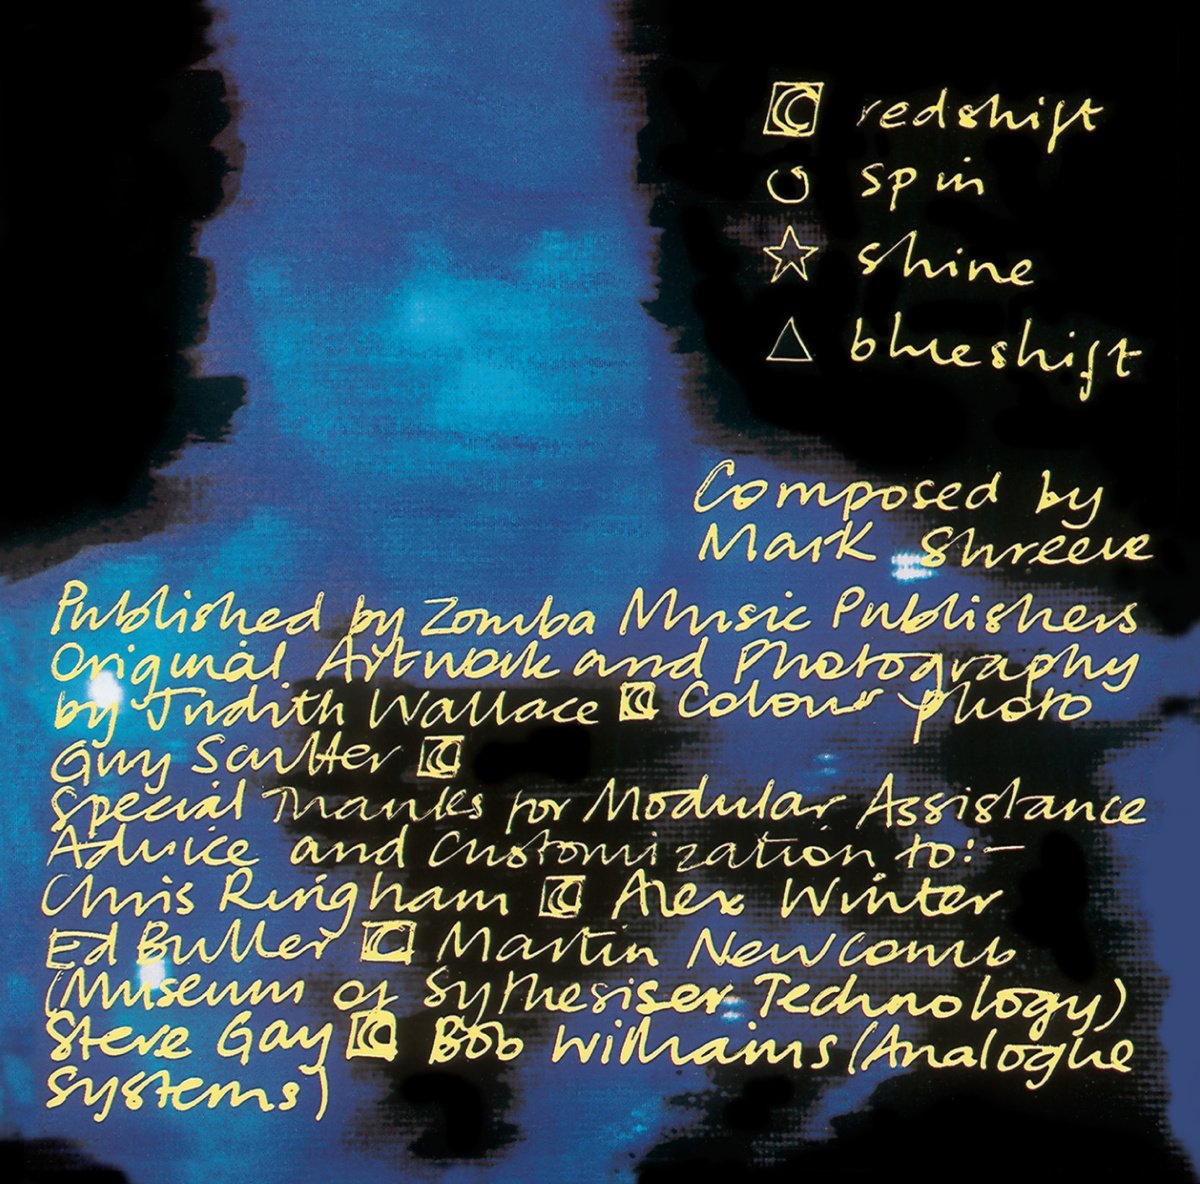 redshift
spin
shine
blueshift
Composed by
Mark Shreeve
Published by Zomba Music Publishers
Original Artwork and Photography
by Judith Wallace Colour photo
Guy Saulter
Special Thanks for Modular Assistance
Advice and Customization to:-
Chris Ringham Alex Winter
Ed Buller Martin Newcomb
(Museum of Sythesiser Technology)
Steve Gay Bob Williams (Analogue
Systems)